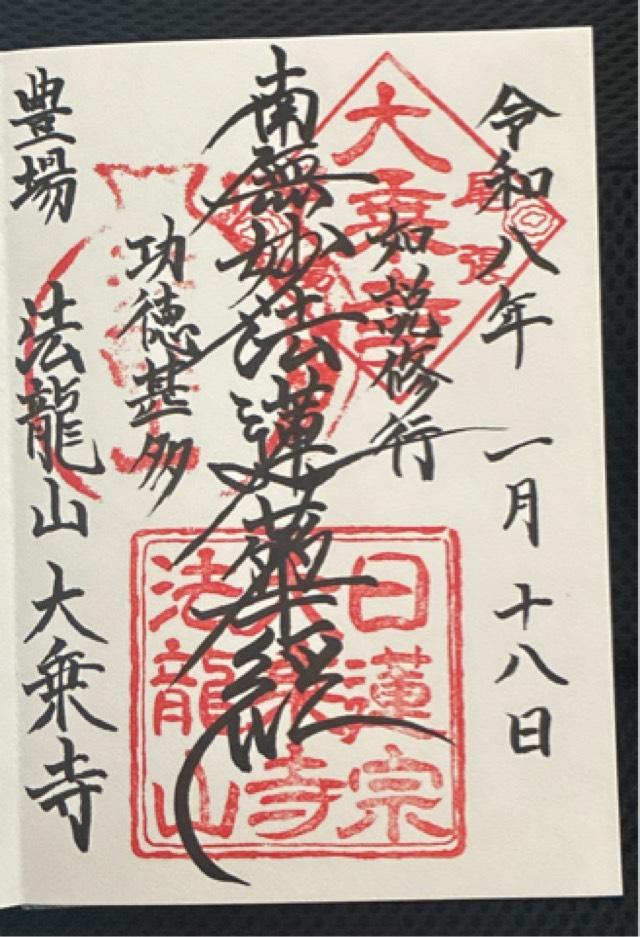 令和八年 一月十八日
如説修行
南無妙法蓮華経
功徳甚多
豊場 法龍山 大乗寺
大乗寺
尾張
日蓮宗
大乗寺
法龍山